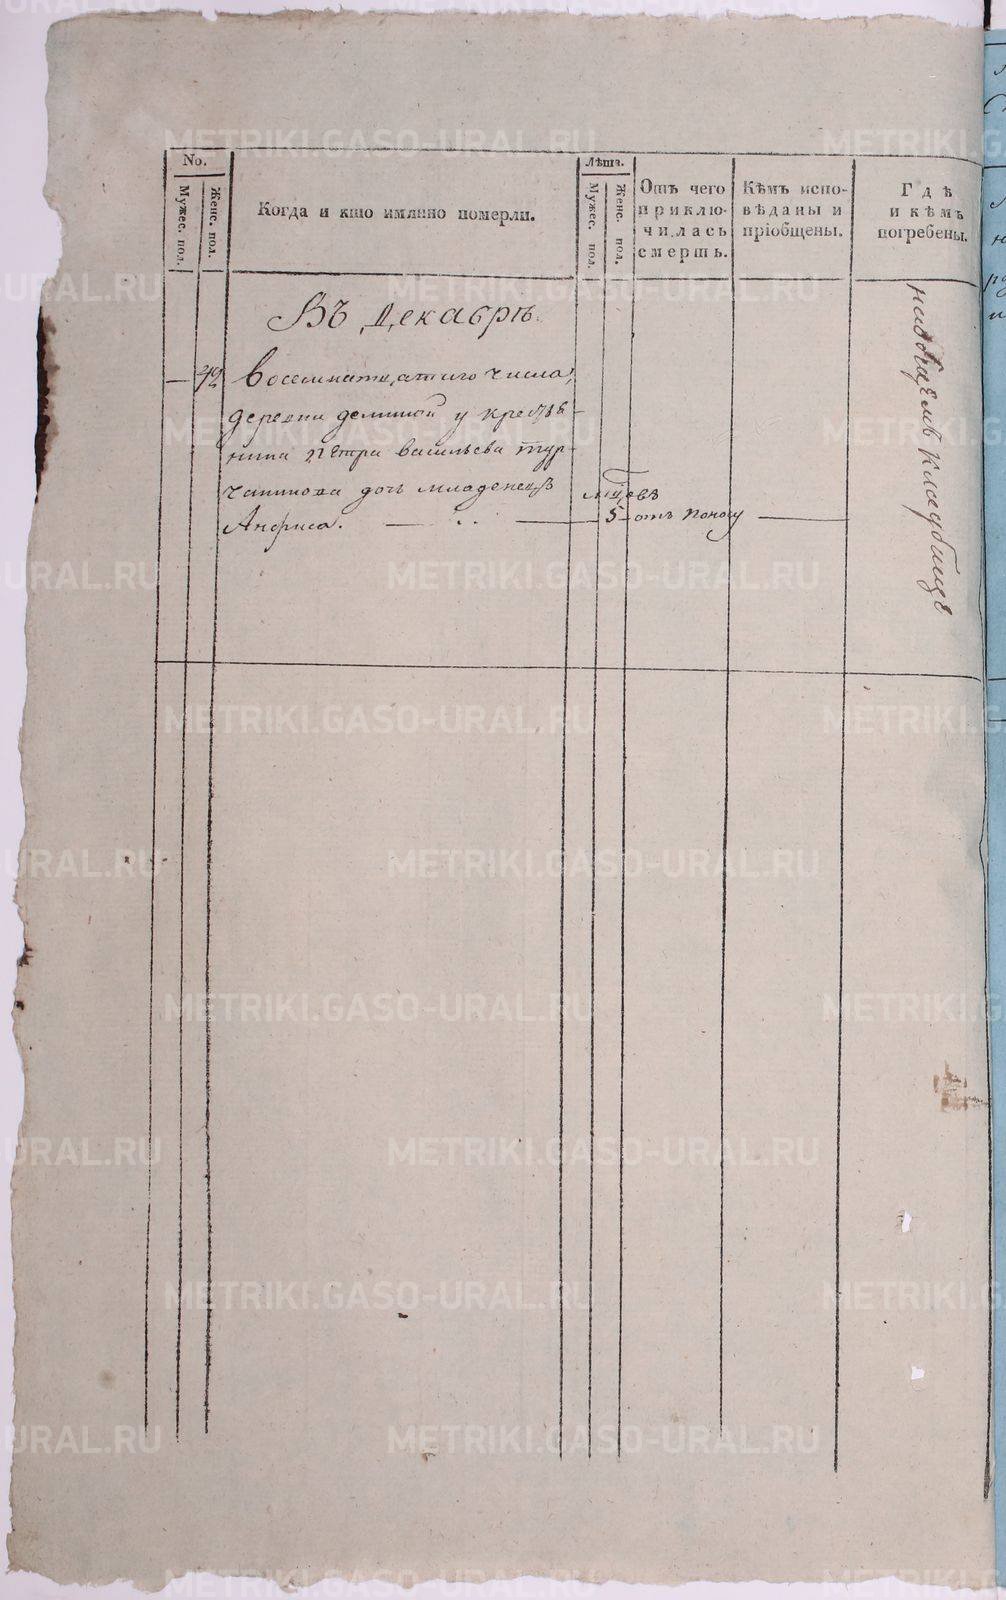 No.
Мужес. пол.
Женс. пол.
Когда и кто имянно померли.
Лѣта.
Мужес. пол.
Женс. пол.
Отъ чего
приклю-
чилась
смерть.
Кѣмъ испо-
вѣданы и
пріобщены.
Гдѣ
и кѣмъ
погребены.
Въ Декабрѣ.
— 42 восемнатцатого числа,
деревни деминой у крестья-
нина Петра Васильева Тур-
чанинова дочь младенецъ
Анфиса. —
мцовъ
5 отъ поносу —
на общемъ кладбище
METRIKI.GASO-URAL.RU